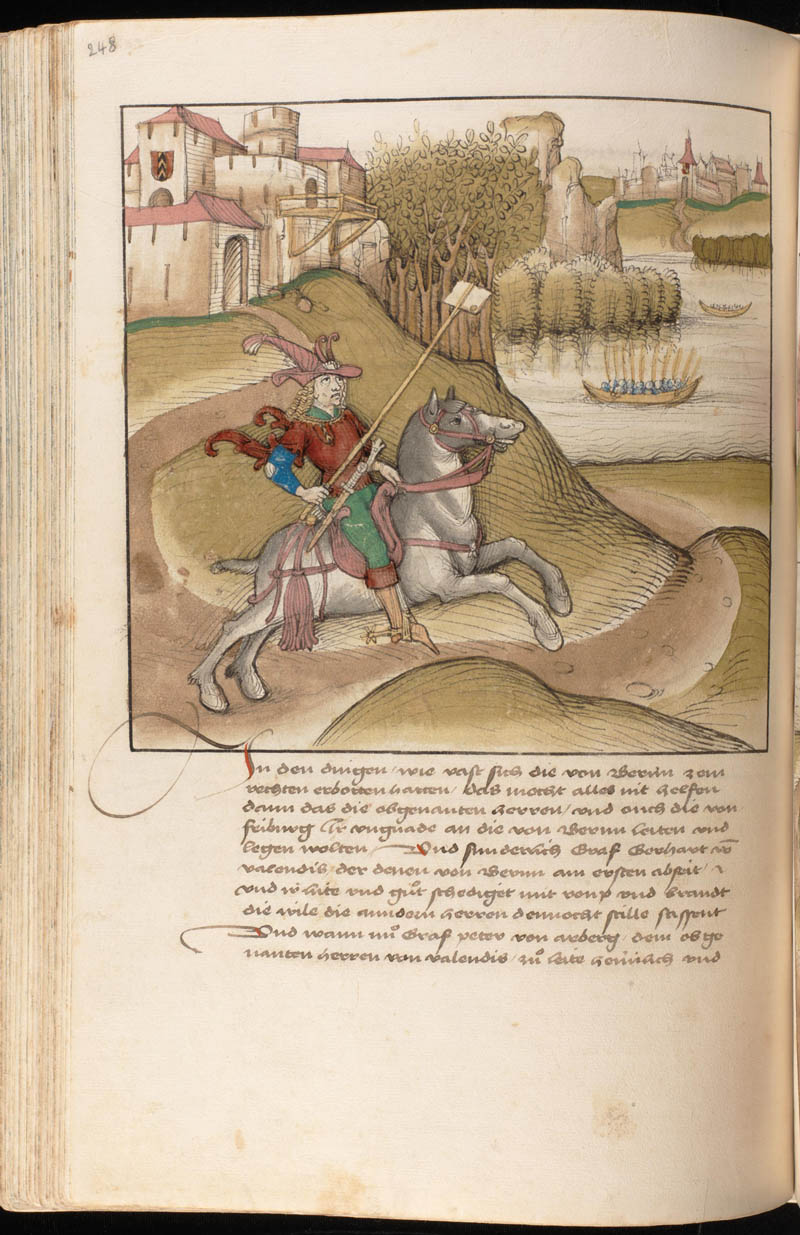 248
In den dingen / wie vast sich die von Bernn zem
rechten erbotten hatten / das mocht alles nit helfen
dann das die obgenanten herren / vnd ouch die von
friburg Ir vngnade an die von Bernn leiten vnd
legen wolten / Vnd sunderlich Graf Gerhart von
valendis / der denen von Bernn am ersten abseit /
vnd ir lüte vnd guͦt schediget mit roup vnd brandt
die wile die anndern herren dennocht stille sassent
Vnd wann nuͦ Graf peter von arberg / dem obge
nanten herren von valendis / zuͦ leite heimlich vnd